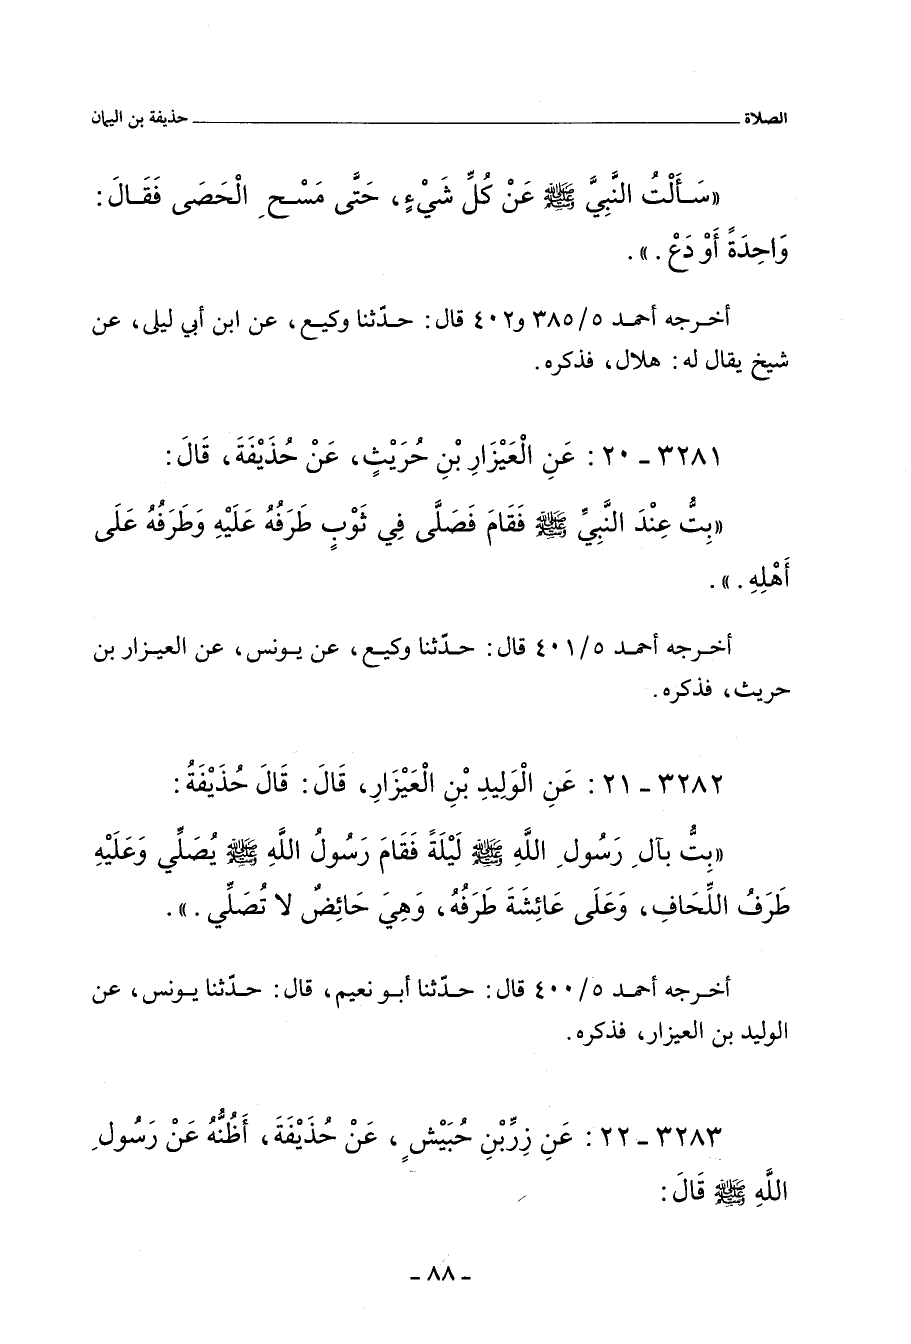 الصلاة ـــــــ حذيفة بن اليمان
«سَأَلْتُ النَّبِيَّ ﷺ عَنْ كُلِّ شَيْءٍ، حَتَّى مَسْحِ الْحَصَى فَقَالَ:
وَاحِدَةً أَوْ دَعْ.».
أخرجه أحمد ٣٨٥/٥ و٤٠٢ قال: حدّثنا وكيع، عن ابن أبي ليلى، عن
شيخ يقال له: هلال، فذكره.
٣٢٨١ - ٢٠: عَنِ الْعَيْزَارِ بْنِ حُرَيْثٍ، عَنْ حُذَيْفَةَ، قَالَ:
«بِتُّ عِنْدَ النَّبِيِّ ﷺ فَقَامَ فَصَلَّى فِي ثَوْبٍ طَرَفُهُ عَلَيْهِ وَطَرَفُهُ عَلَى
أَهْلِهِ.».
أخرجه أحمد ٤٠١/٥ قال: حدّثنا وكيع، عن يونس، عن العيزار بن
حريث، فذكره.
٣٢٨٢ - ٢١: عَنِ الْوَلِيدِ بْنِ الْعَيْزَارِ، قَالَ: قَالَ حُذَيْفَةُ:
«بِتُّ بآلِ رَسُولِ اللَّهِ ﷺ لَيْلَةً فَقَامَ رَسُولُ اللَّهِ ﷺ يُصَلِّي وَعَلَيْهِ
طَرَفُ اللِّحَافِ، وَعَلَى عَائِشَةَ طَرَفُهُ، وَهِيَ حَائِضٌ لا تُصَلِّي.».
أخرجه أحمد ٤٠٠/٥ قال: حدّثنا أبو نعيم، قال: حدّثنا يونس، عن
الوليد بن العيزار، فذكره.
٣٢٨٣ - ٢٢: عَنِ زِرِّ بْنِ حُبَيْشٍ، عَنْ حُذَيْفَةَ، أَظُنُّهُ عَنْ رَسُولِ
اللَّهِ ﷺ قَالَ:
- ٨٨ -